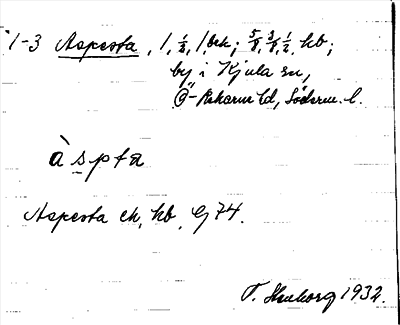 1-3 Aspesta, 1, 1/8, 1 frk; 5/8, 3/8, 1/2 hb;
by i Kjula sn,
Ö-Rekarne hd, Söderm. l.
àspta
Aspesta ch, hb, G 74.
1932.